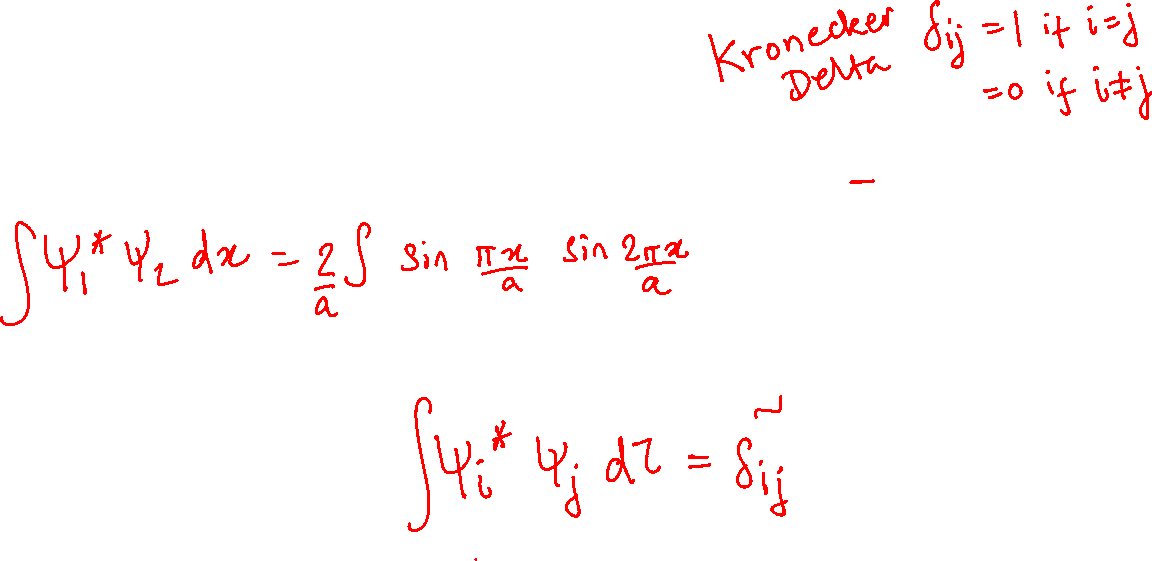 Kronecker δij = 1 if i=j
Delta = 0 if i≠j
∫ψ₁* ψ₂ dx = 2/a ∫ sin πx/a sin 2πx/a
∫ψi* ψj dτ = δij